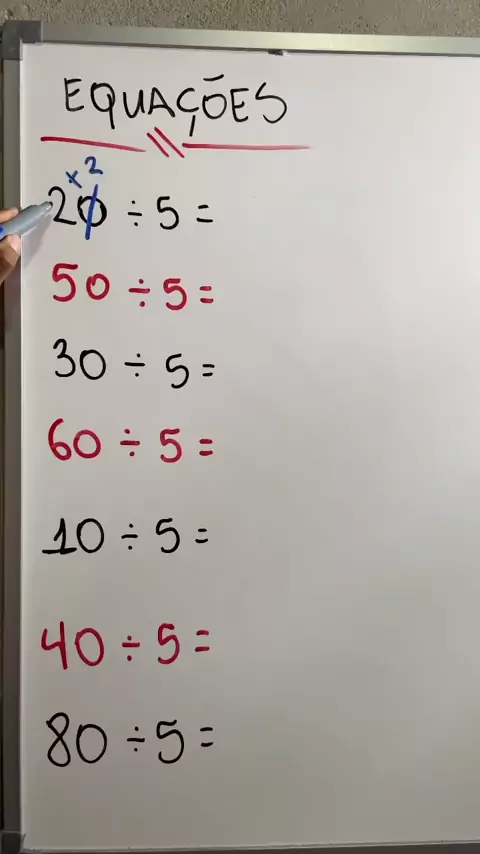 EQUAÇÕES
x2
20 ÷ 5 =
50 ÷ 5 =
30 ÷ 5 =
60 ÷ 5 =
10 ÷ 5 =
40 ÷ 5 =
80 ÷ 5 =